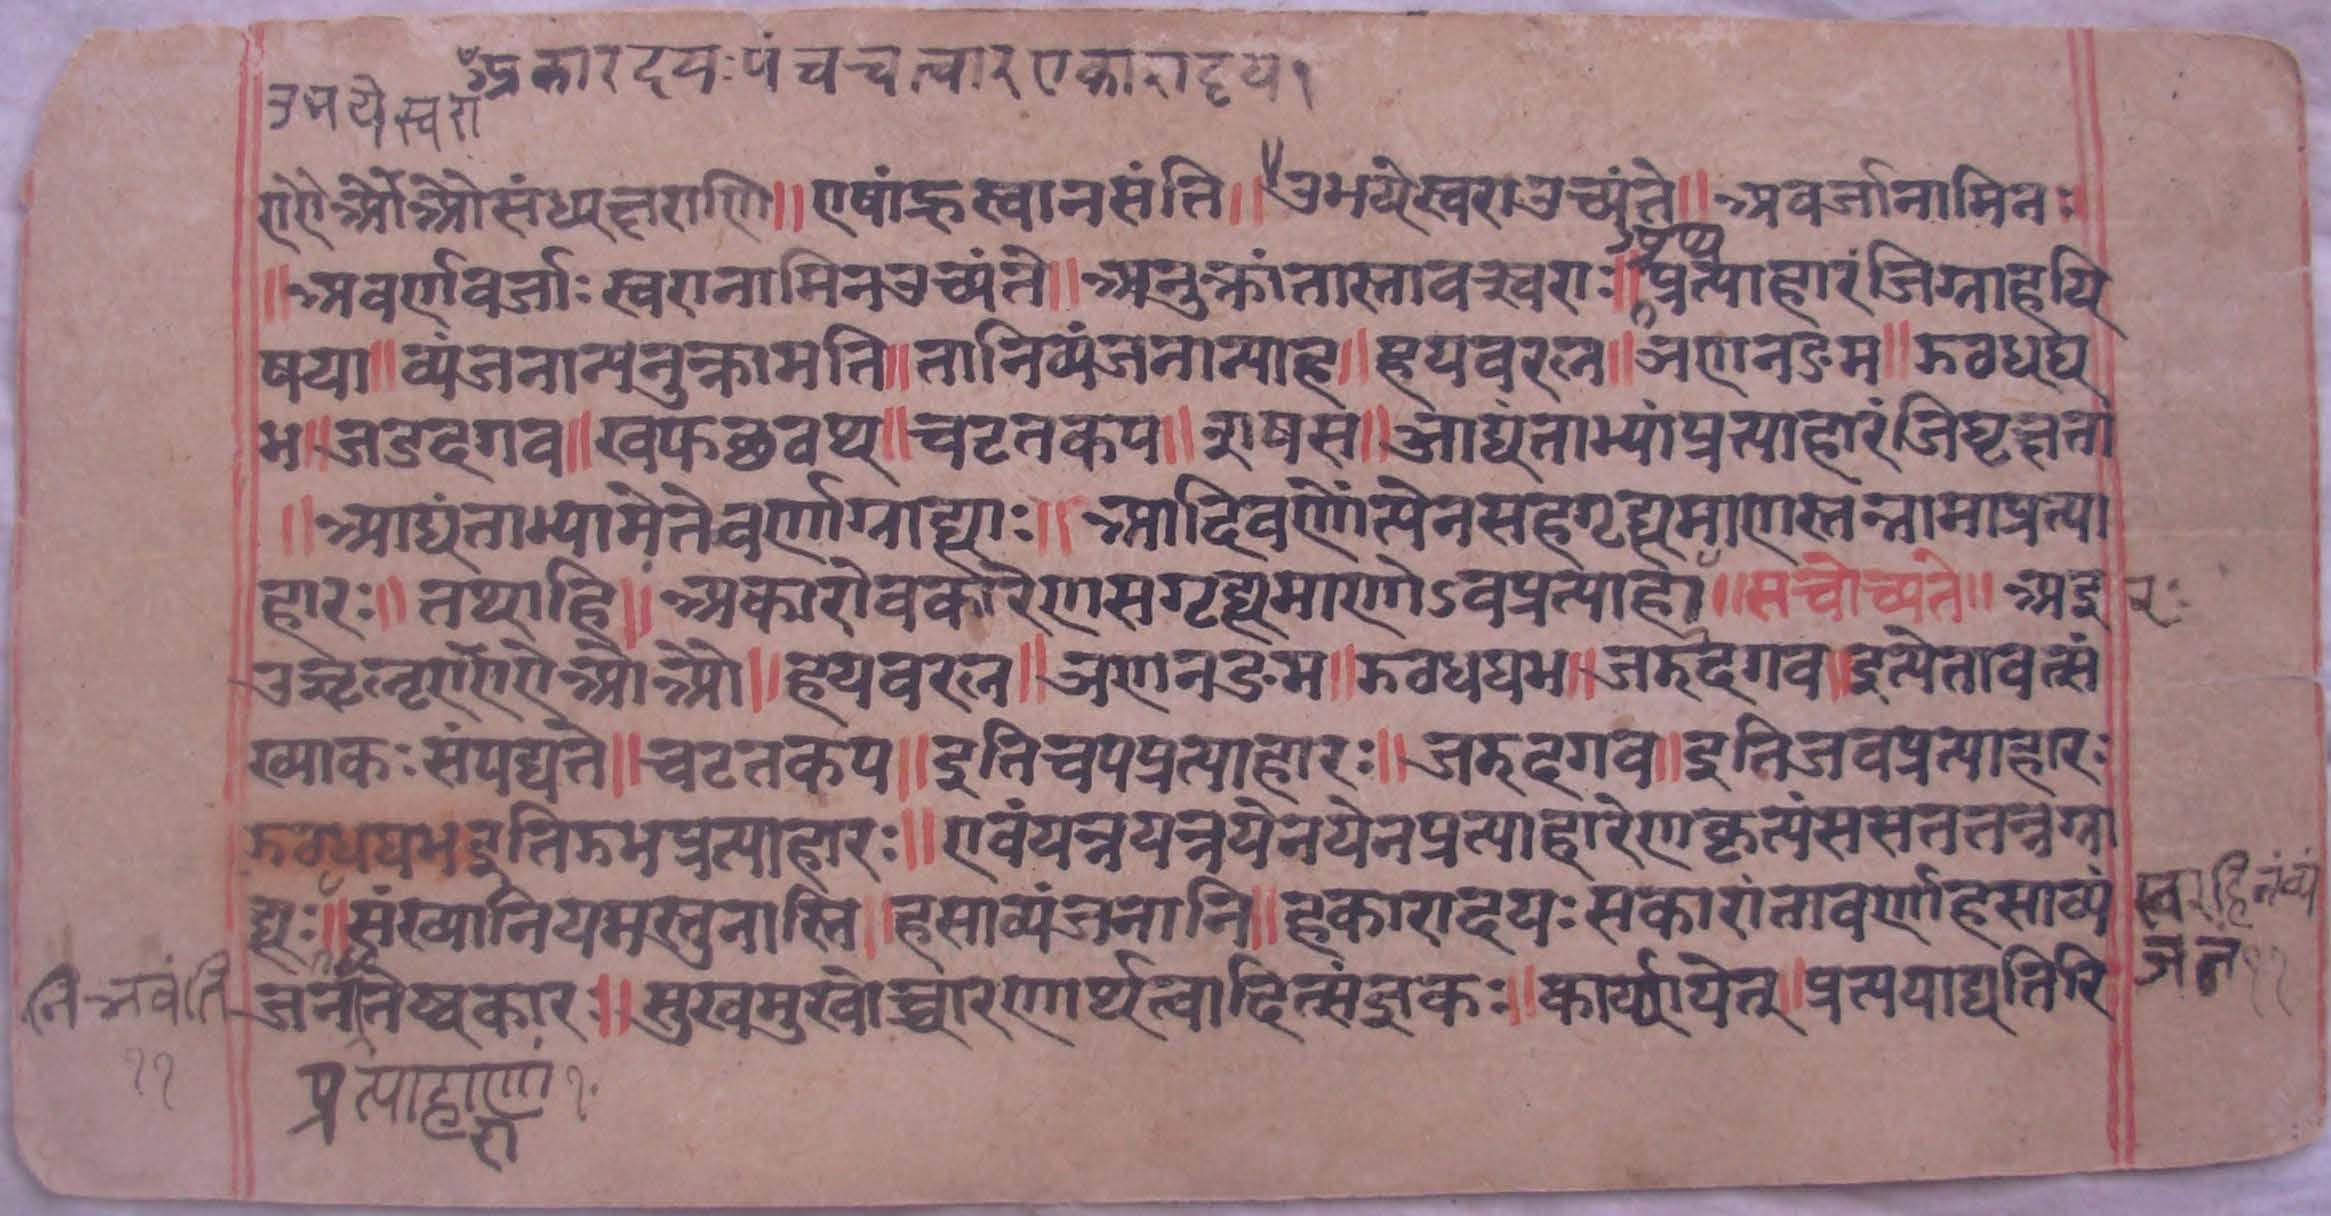 अकारदयः पंच चत्वार एकारादय १
उभये स्वरा
ए ऐ ओ औ संध्यक्षराणि ॥ एषां ह्रस्वा न संति ॥ उभये स्वरा उच्यंते ॥ अवर्जा नामिनः
॥ अवर्णवर्जाः स्वरा नामिन उच्यंते ॥ अनुक्रांतास्तावत्स्वराः ॥ प्रत्याहारं जिग्राहयि
षया ॥ व्यंजनान्यनुक्रामति ॥ तानि व्यंजनान्याह ॥ हयवरल ॥ ञणनङम ॥ झढधघ
भ ॥ जडदगब ॥ खफछठथ ॥ चटतकप ॥ शषस ॥ आद्यंताभ्यां प्रत्याहारं जिघृक्षता
॥ आद्यंताभ्यामेते वर्णा ग्राह्याः ॥ आदिवर्णोंत्येन सह गृह्यमाणस्तन्नामा प्रत्या
हारः ॥ तथाहि ॥ अकारो बकारेण स गृह्यमाणोऽबप्रत्याहा ॥ स चोच्यते ॥ अइ रः
उऋऌएऐओऔ ॥ हयवरल ॥ ञणनङम ॥ झढधघभ ॥ जडदगब ॥ इत्येतावत्सं
ख्याकः संपद्यते ॥ चटतकप ॥ इति चपप्रत्याहारः ॥ जडदगब ॥ इति जबप्रत्याहारः
झढधघभ इति झभप्रत्याहारः ॥ एवं यत्र यत्र येन येन प्रत्याहारेण कृत्यं स स तत्र ग्रा
ह्यः ॥ संख्यानियमस्तु नास्ति ॥ हसा व्यंजनानि ॥ हकारादयः सकारांता वर्णा हसा व्यं
स्वरहिनंव्यं
जनं ११
नि भवंति
११
जन तेष्वकारः ॥ सुखमुखोच्चारणार्थत्वादित्संज्ञकः ॥ कार्य्यायेत् ॥ प्रत्ययाद्यतिरि
प्रत्याहाराणां १